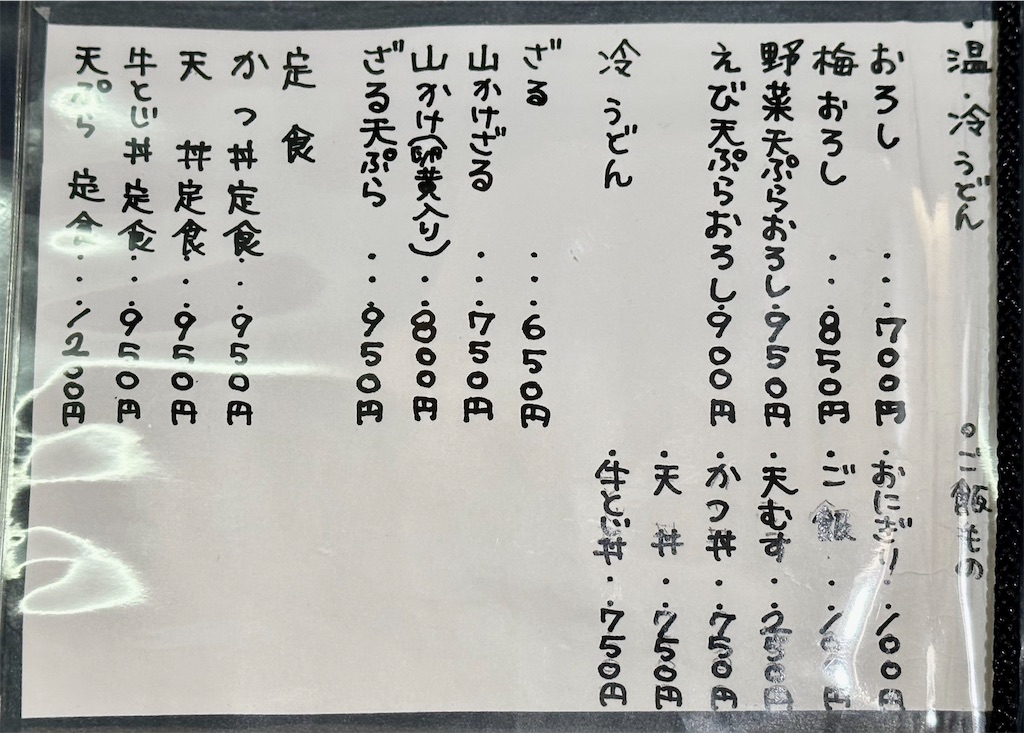 ・温・冷うどん
おろし ・・・700円
梅おろし ・・850円
野菜天ぷらおろし・950円
えび天ぷらおろし・900円
冷うどん
ざる ・・・650円
山かけざる ・・・750円
山かけ(卵黄入り)・・800円
ざる天ぷら ・・・950円
定食
かつ丼定食・・・950円
天丼定食・・・950円
牛とじ丼定食・・・950円
天ぷら定食・・・1200円
○ご飯もの
・おにぎり・・100円
・ご飯・・100円
・天むす・・250円
・かつ丼・・750円
・天丼・・750円
・牛とじ丼・・750円